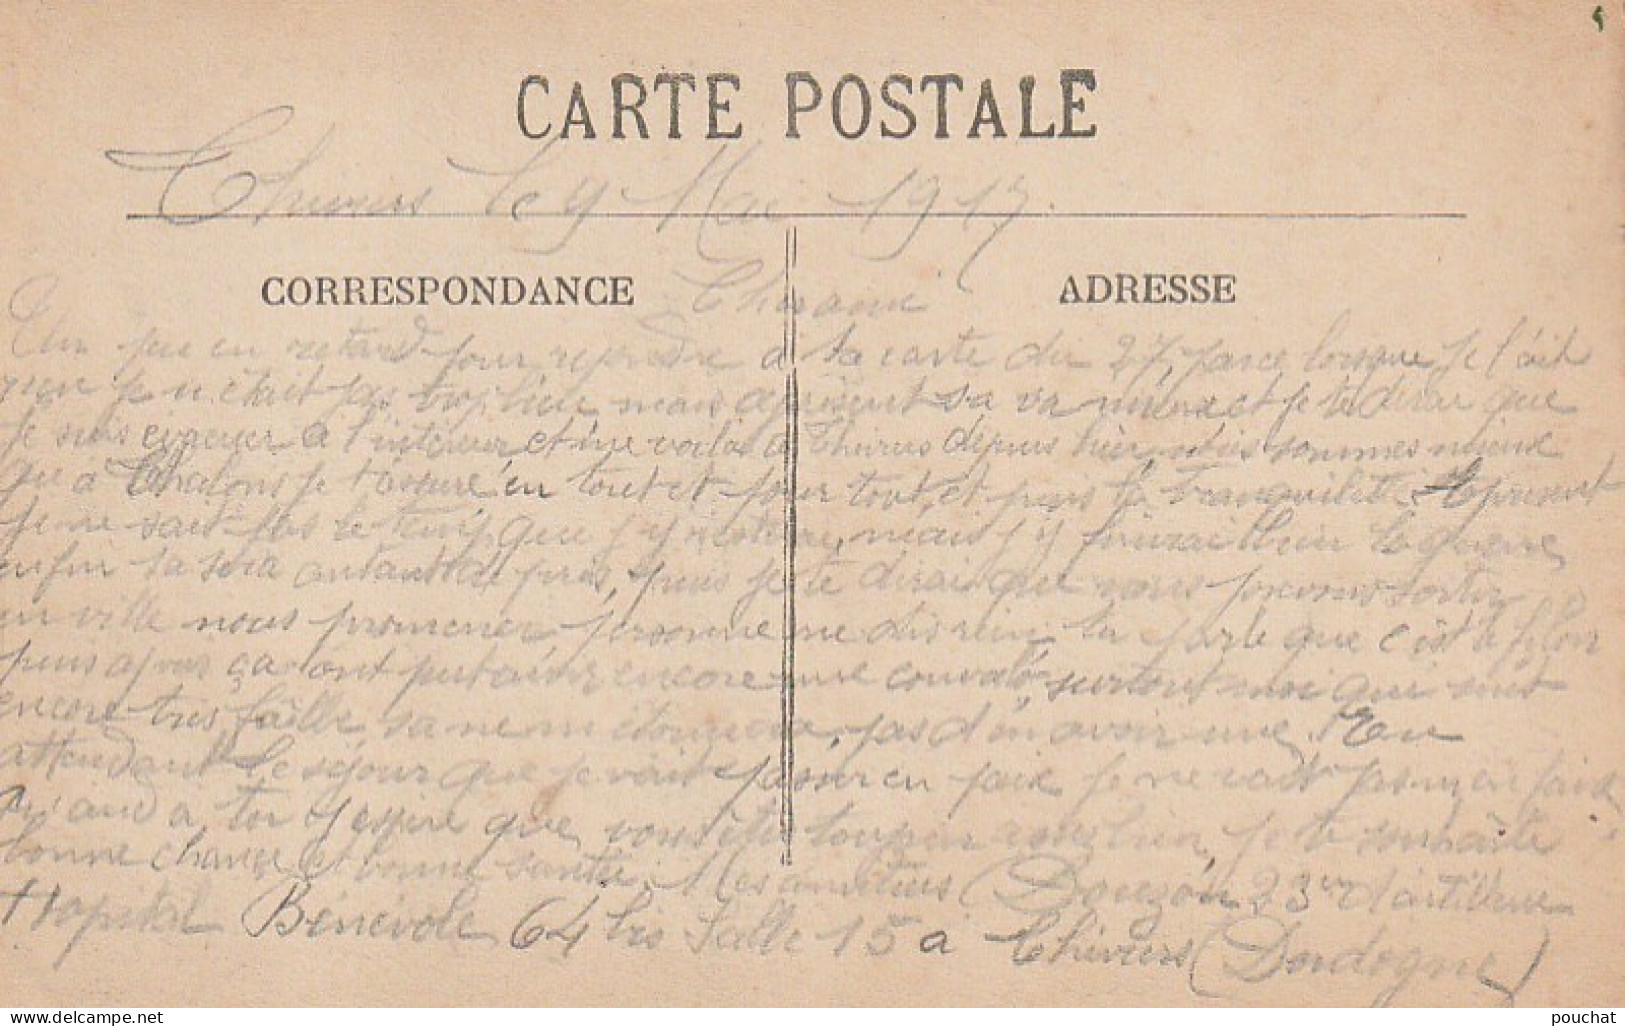 CARTE POSTALE
Thiviers le 9 Mai 1917
CORRESPONDANCE
ADRESSE
Un peu en retard pour repondre a ta carte du 27, parce lorsque je l'ait
je n'était pas trop bien mais apresent sa va mieux et je te dirai que
je suis evacuer a l'interieur et me voilas a Thiviers depuis hier, nous sommes mieux
qu a Chalons je t'assure en tout et pour tout, et puis la tranquilité. Apresent
je ne sait pas le temps que j'y resterai, mais j'y finirai bien la guerre
enfin sa sera autant de pris, puis je te dirai que nous pouvons sortir
en ville nous promener personne ne dis rien tu parle que c'est le filon
puis apres ça ont peut avoir encore une convalo, surtout moi qui suit
encore tres faible sa ne m'étonnerai pas d'en avoir une. En
attendant le séjour que je vait passer en paix je ne vait pas m'en faire
Quand a toi j'espere que vous ete toujour assez bien, je te souhaite
bonne chance et bonne santée. Mes amitiés Douzon 23 d'artillerie
Hopital Bénévole 64 bis Salle 15 a Thiviers (Dordogne)
pouchat
www.delcampe.net